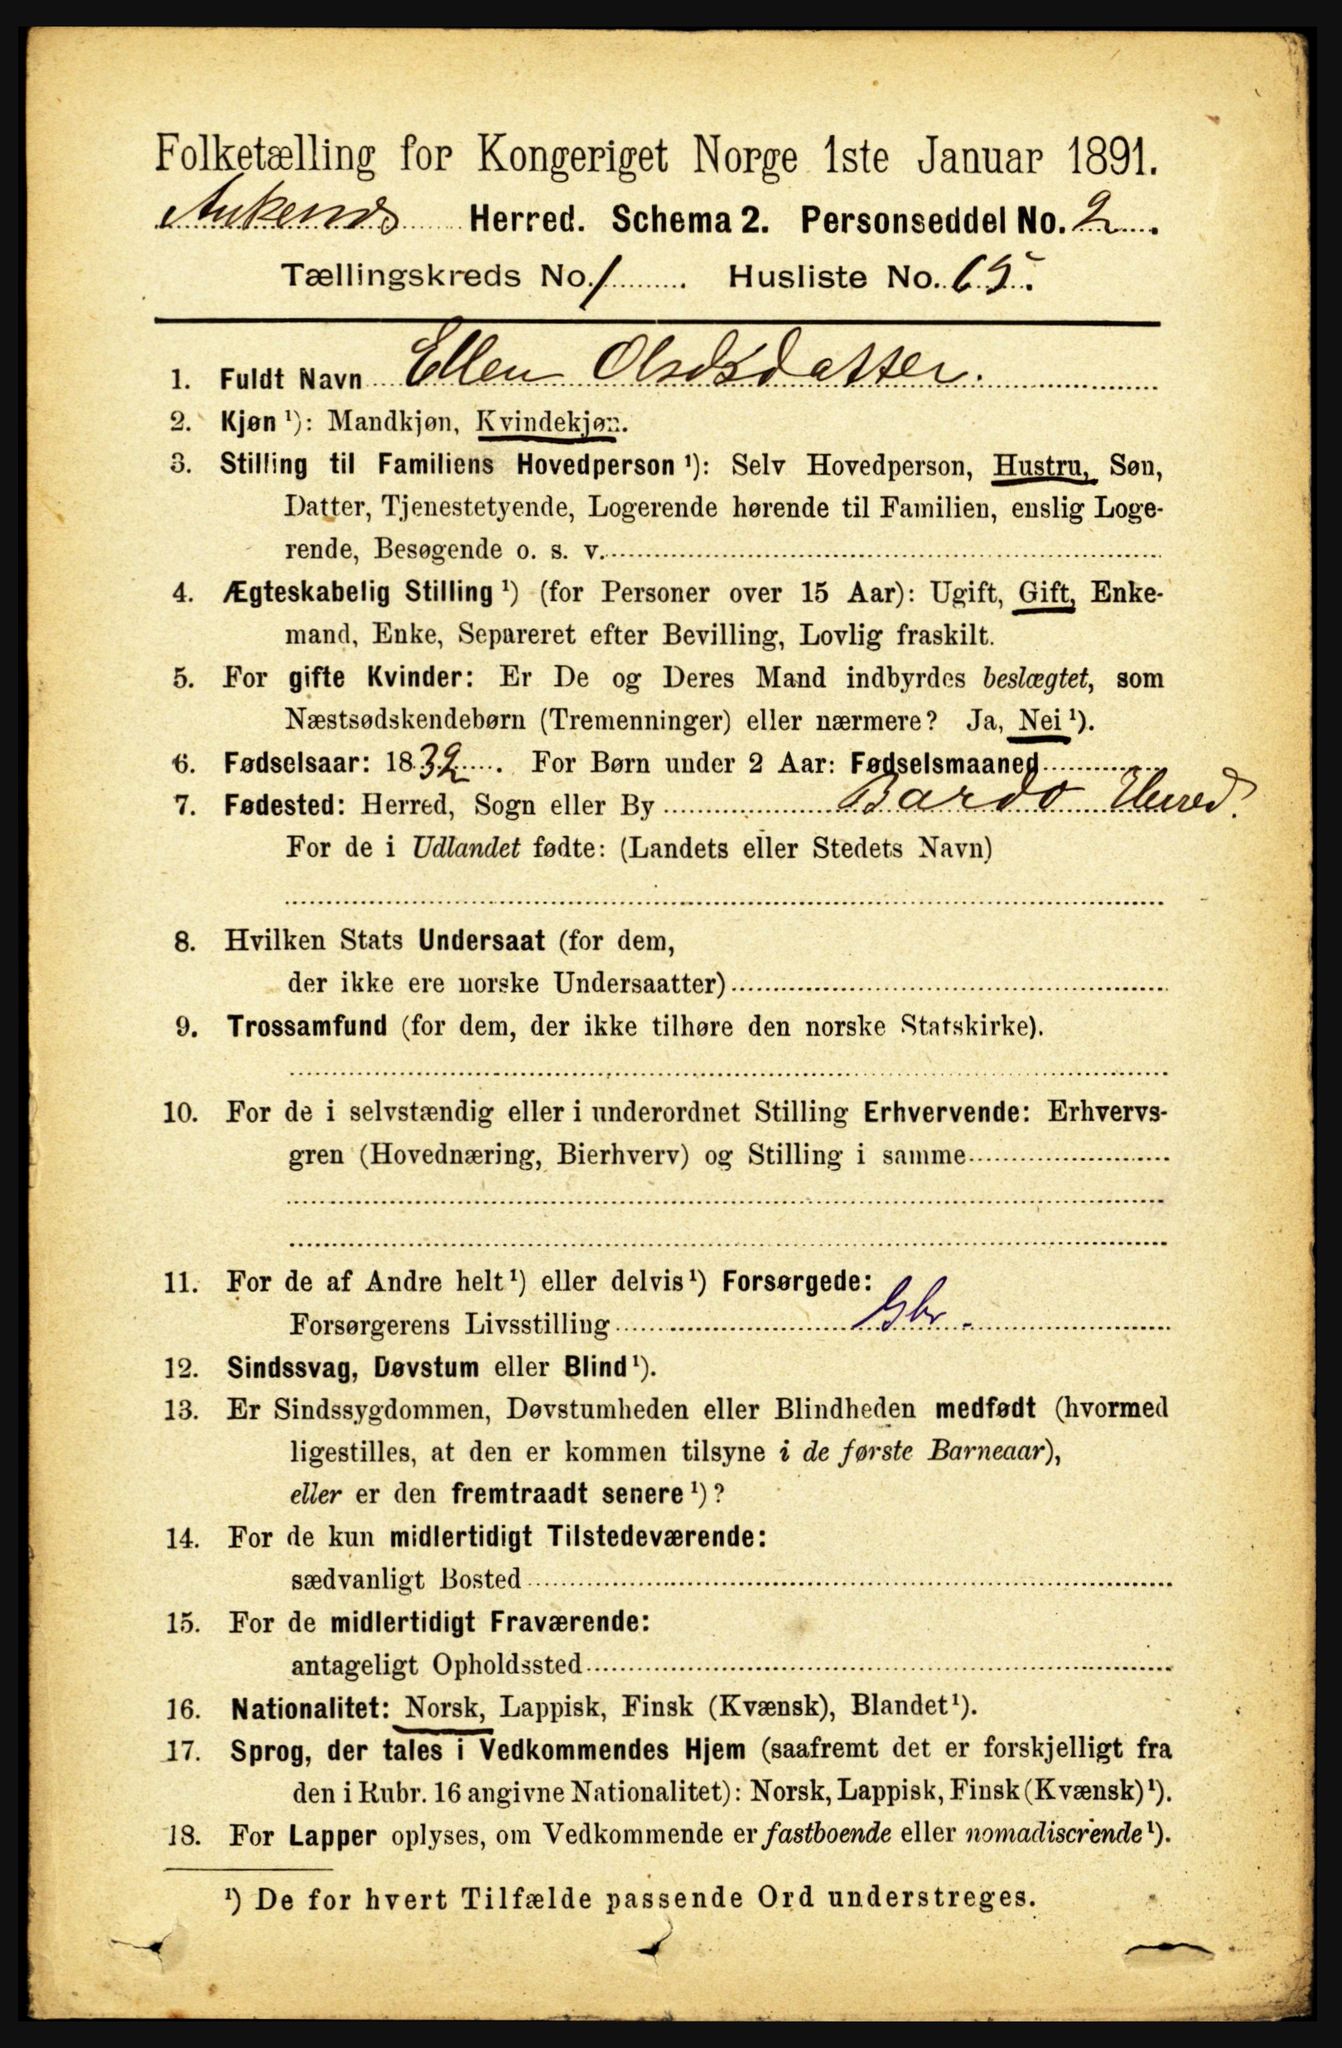 Folketælling for Kongeriget Norge 1ste Januar 1891.
Ankenes Herred. Schema 2. Personseddel No. 2.
Tællingskreds No. 1. Husliste No. 65.
1. Fuldt Navn Ellen Olsdatter.
2. Kjøn ¹): Mandkjøn, Kvindekjøn.
3. Stilling til Familiens Hovedperson ¹): Selv Hovedperson, Hustru, Søn,
Datter, Tjenestetyende, Logerende hørende til Familien, enslig Loge-
rende, Besøgende o. s. v.
4. Ægteskabelig Stilling ¹) (for Personer over 15 Aar): Ugift, Gift, Enke-
mand, Enke, Separeret efter Bevilling, Lovlig fraskilt.
5. For gifte Kvinder: Er De og Deres Mand indbyrdes beslægtet, som
Næstsødskendebørn (Tremenninger) eller nærmere? Ja, Nei ¹).
6. Fødselsaar: 1832. For Børn under 2 Aar: Fødselsmaaned
7. Fødested: Herred, Sogn eller By Bardo Herred.
For de i Udlandet fødte: (Landets eller Stedets Navn)
8. Hvilken Stats Undersaat (for dem,
der ikke ere norske Undersaatter)
9. Trossamfund (for dem, der ikke tilhøre den norske Statskirke).
10. For de i selvstændig eller i underordnet Stilling Erhvervende: Erhvervs-
gren (Hovednæring, Bierhverv) og Stilling i samme
11. For de af Andre helt ¹) eller delvis ¹) Forsørgede:
Forsørgerens Livsstilling Gbr.
12. Sindssvag, Døvstum eller Blind ¹).
13. Er Sindssygdommen, Døvstumheden eller Blindheden medfødt (hvormed
ligestilles, at den er kommen tilsyne i de første Barneaar),
eller er den fremtraadt senere ¹)?
14. For de kun midlertidigt Tilstedeværende:
sædvanligt Bosted
15. For de midlertidigt Fraværende:
antageligt Opholdssted
16. Nationalitet: Norsk, Lappisk, Finsk (Kvænsk), Blandet ¹).
17. Sprog, der tales i Vedkommendes Hjem (saafremt det er forskjelligt fra
den i Rubr. 16 angivne Nationalitet): Norsk, Lappisk, Finsk (Kvænsk) ¹).
18. For Lapper oplyses, om Vedkommende er fastboende eller nomadiserende ¹).
¹) De for hvert Tilfælde passende Ord understreges.